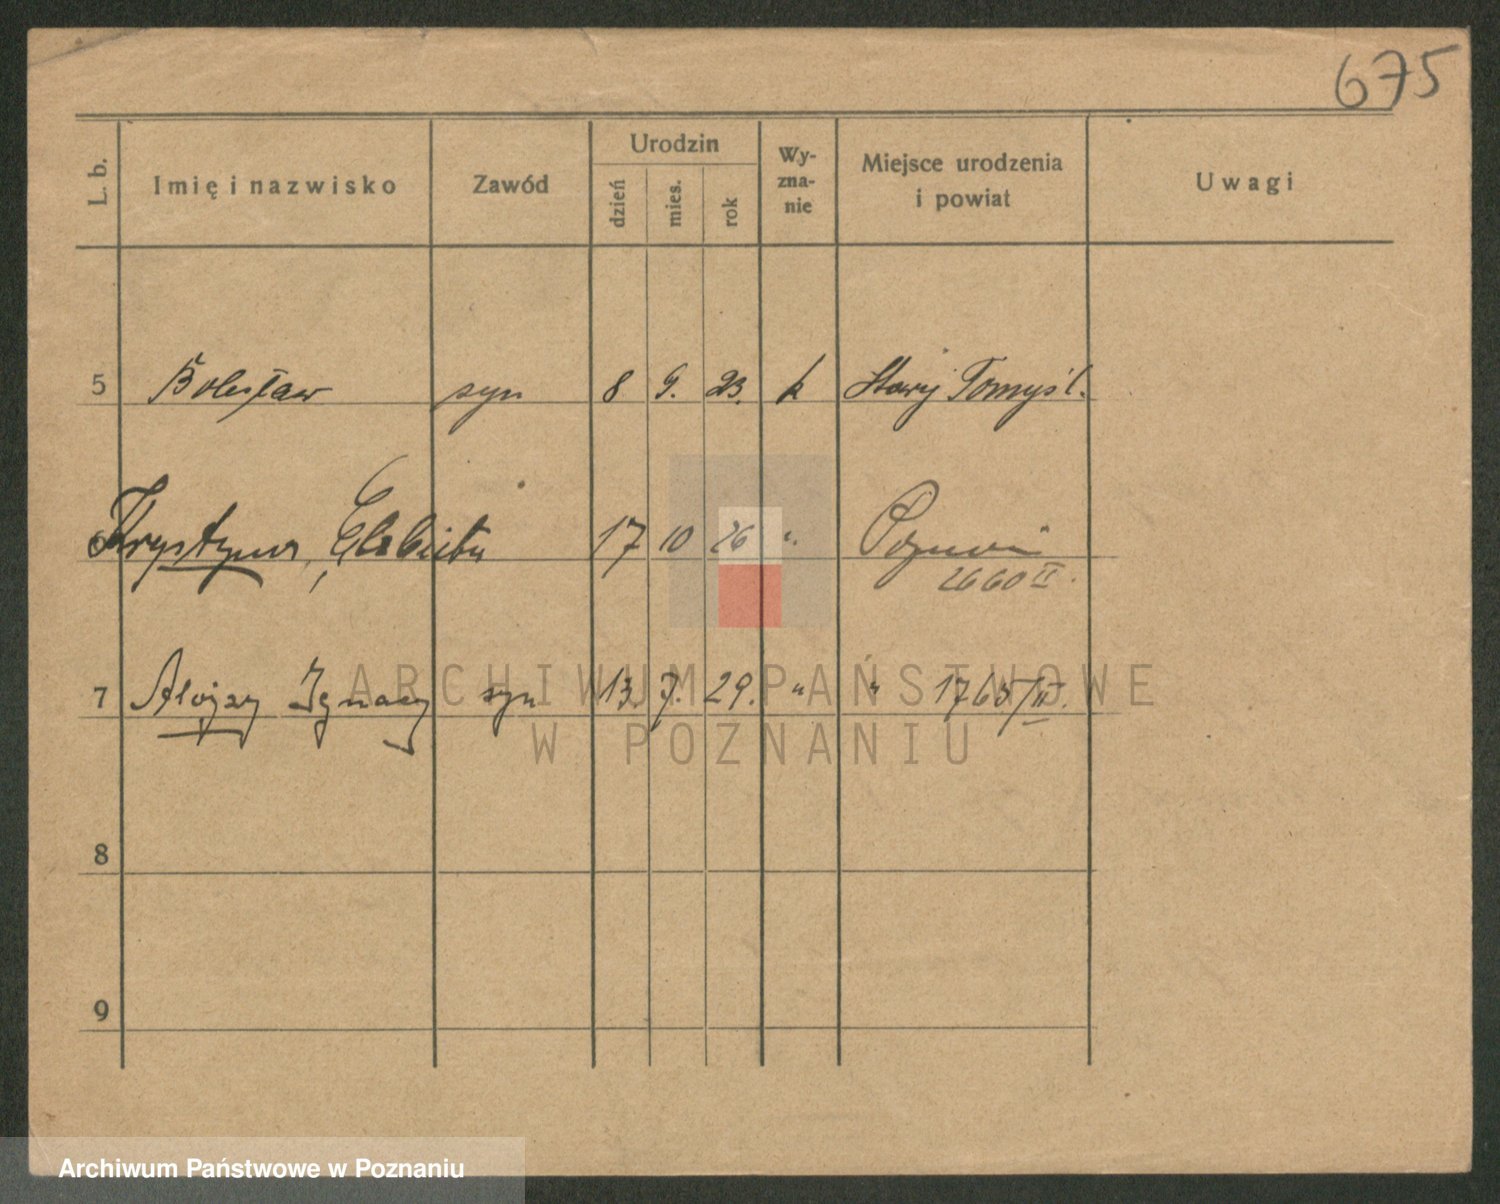 675
L. b.
Imię i nazwisko
Zawód
Urodzin
dzień
mies.
rok
Wy-
zna-
nie
Miejsce urodzenia
i powiat
Uwagi
5 Bolesław syn 8 9. 23. k Stary Tomyśl.
6 Krystyna, Elżbieta 17 10 26 " Poznań
2660 II.
7 Alojzy Ignacy syn 13. 7. 29. " " 1765/II.
8
9
ARCHIWUM PAŃSTWOWE
W POZNANIU
Archiwum Państwowe w Poznaniu